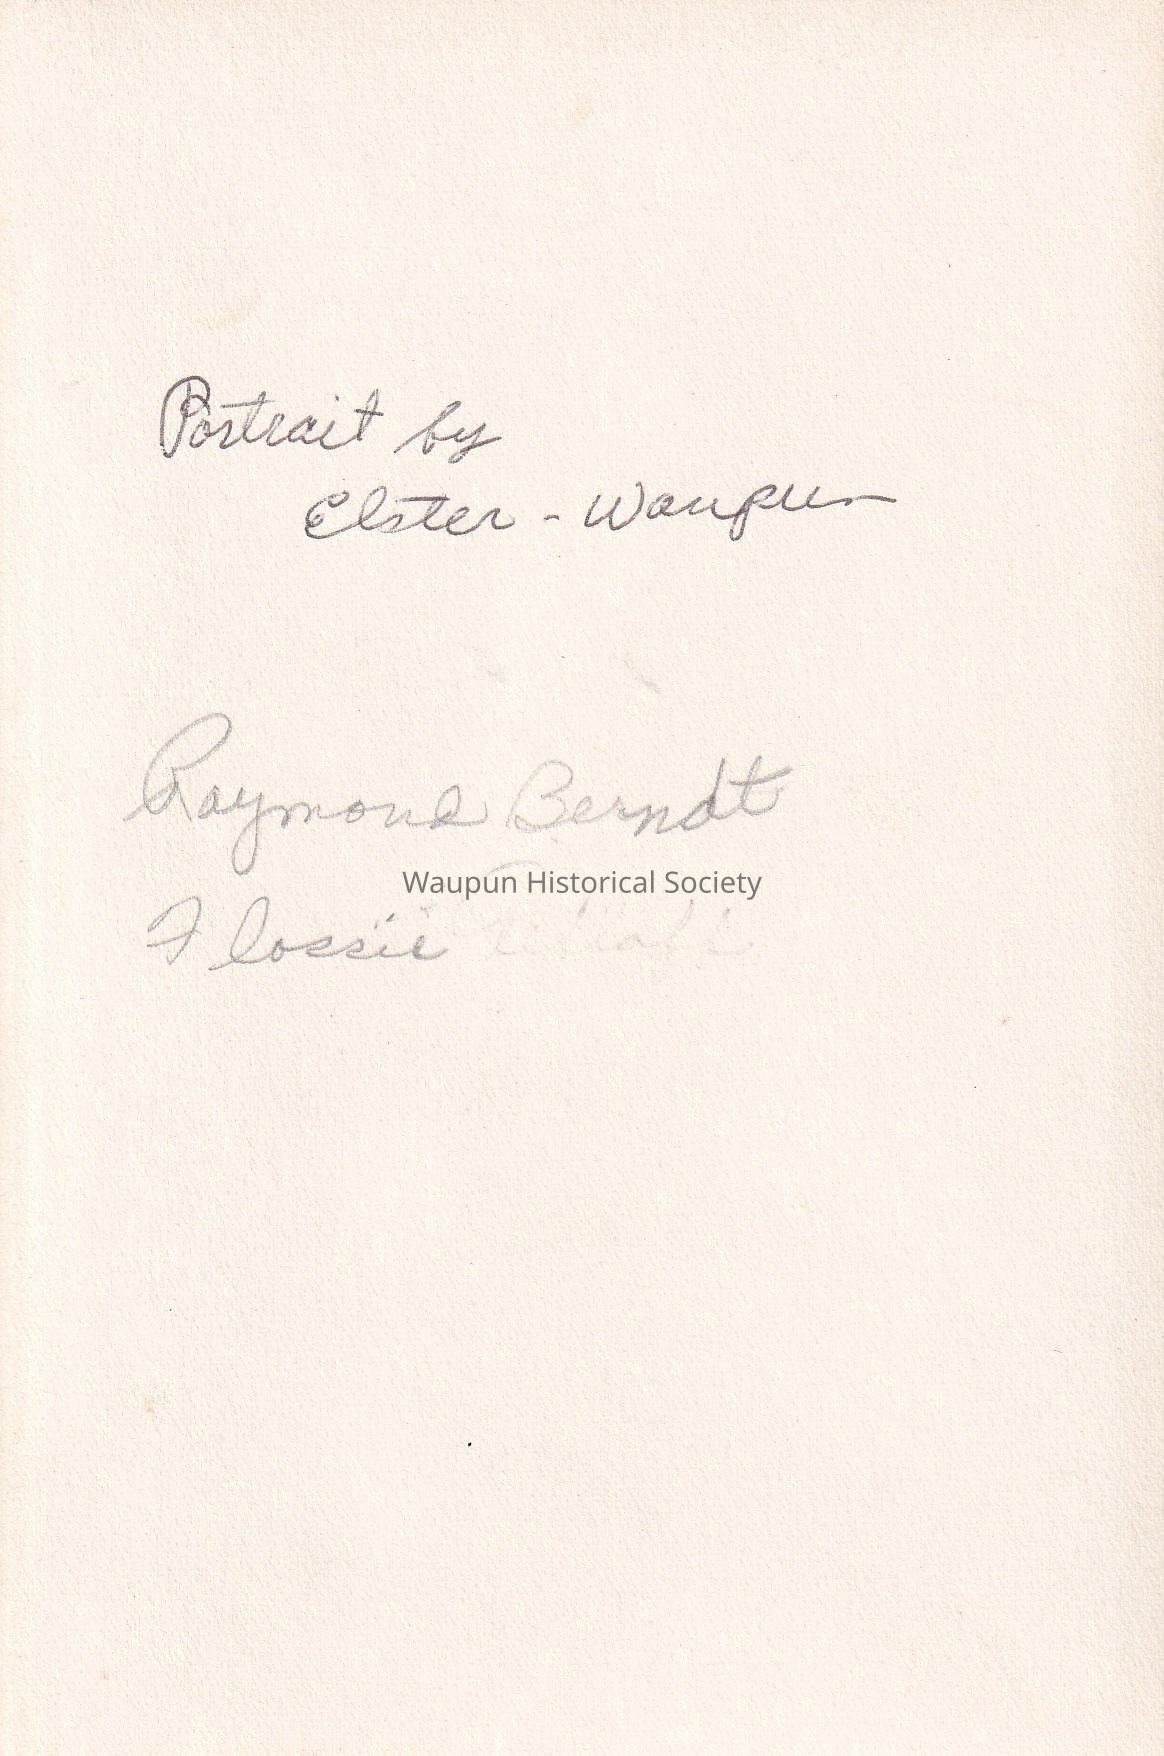 Portrait by
Elster - Waupun
Raymond Berndt
Waupun Historical Society
Flossie